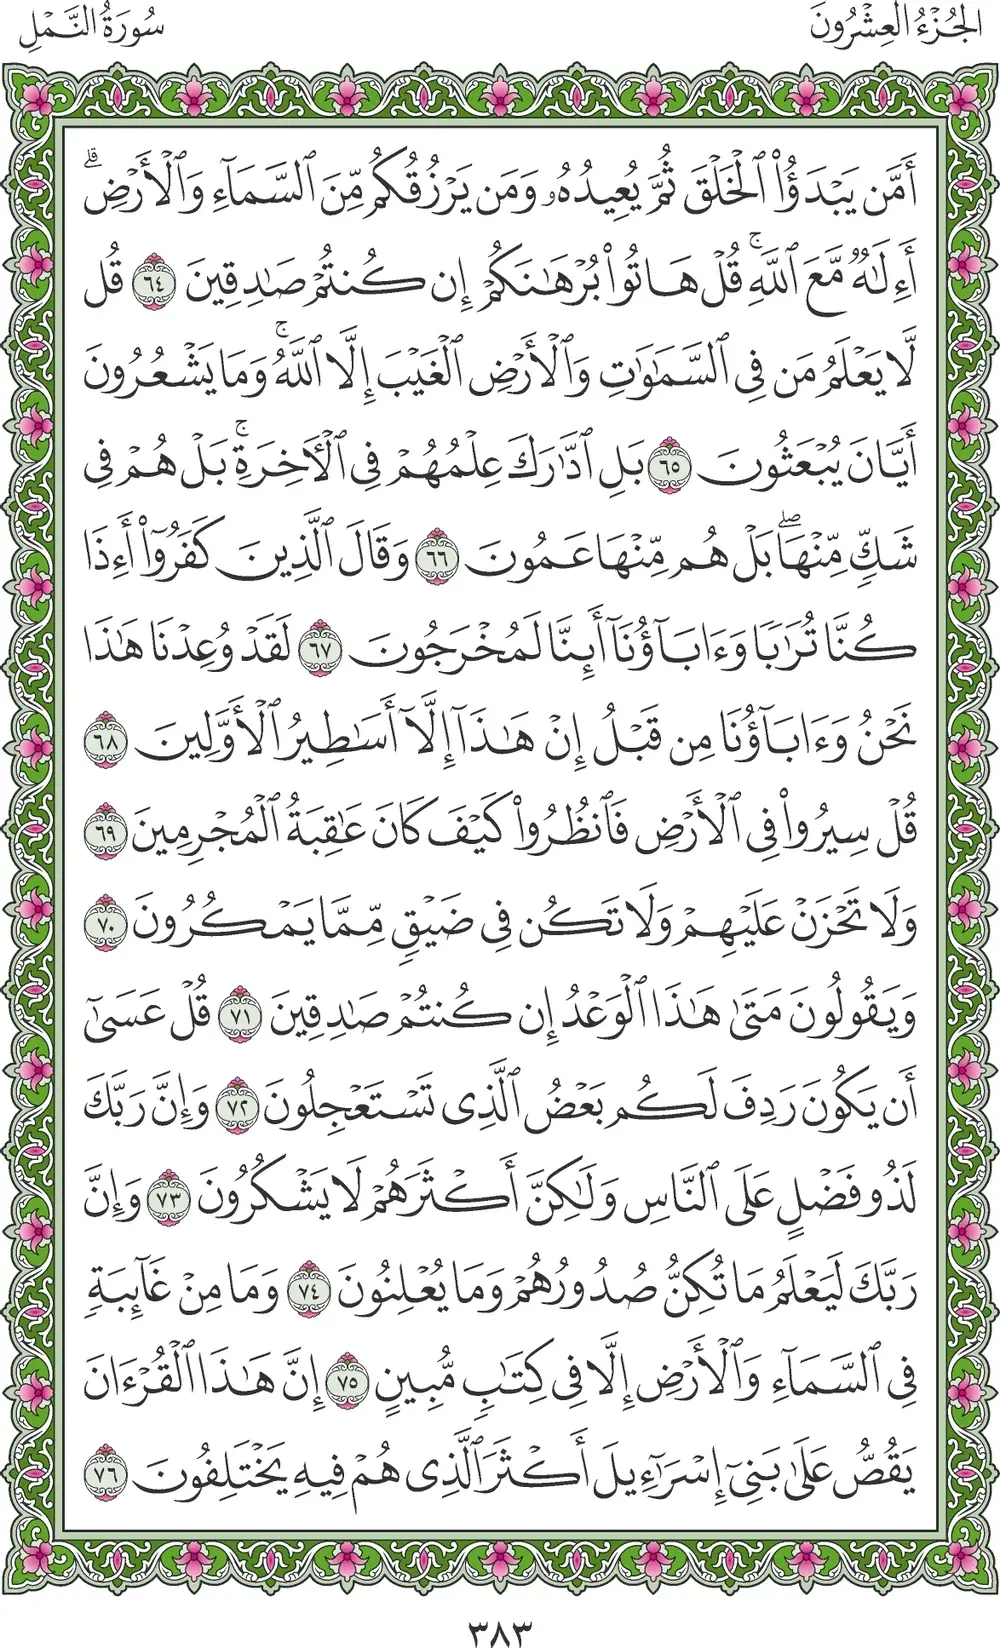 الجُزْءُ العِشْرُونَ
سُورَةُ النَّمْلِ
أَمَّن يَبْدَؤُاْ ٱلْخَلْقَ ثُمَّ يُعِيدُهُۥ وَمَن يَرْزُقُكُم مِّنَ ٱلسَّمَآءِ وَٱلْأَرْضِۗ
أَءِلَٰهٌ مَّعَ ٱللَّهِۚ قُلْ هَاتُواْ بُرْهَٰنَكُمْ إِن كُنتُمْ صَٰدِقِينَ ٦٤ قُل
لَّا يَعْلَمُ مَن فِى ٱلسَّمَٰوَٰتِ وَٱلْأَرْضِ ٱلْغَيْبَ إِلَّا ٱللَّهُۚ وَمَا يَشْعُرُونَ
أَيَّانَ يُبْعَثُونَ ٦٥ بَلِ ٱدَّٰرَكَ عِلْمُهُمْ فِى ٱلْأَخِرَةِۚ بَلْ هُمْ فِى
شَكٍّ مِّنْهَاۖ بَلْ هُم مِّنْهَا عَمُونَ ٦٦ وَقَالَ ٱلَّذِينَ كَفَرُوٓاْ أَءِذَا
كُنَّا تُرَٰبًا وَءَابَآؤُنَآ أَئِنَّا لَمُخْرَجُونَ ٦٧ لَقَدْ وُعِدْنَا هَٰذَا
نَحْنُ وَءَابَآؤُنَا مِن قَبْلُ إِنْ هَٰذَآ إِلَّآ أَسَٰطِيرُ ٱلْأَوَّلِينَ ٦٨
قُلْ سِيرُواْ فِى ٱلْأَرْضِ فَٱنظُرُواْ كَيْفَ كَانَ عَٰقِبَةُ ٱلْمُجْرِمِينَ ٦٩
وَلَا تَحْزَنْ عَلَيْهِمْ وَلَا تَكُن فِى ضَيْقٍ مِّمَّا يَمْكُرُونَ ٧٠
وَيَقُولُونَ مَتَىٰ هَٰذَا ٱلْوَعْدُ إِن كُنتُمْ صَٰدِقِينَ ٧١ قُلْ عَسَىٰٓ
أَن يَكُونَ رَدِفَ لَكُم بَعْضُ ٱلَّذِى تَسْتَعْجِلُونَ ٧٢ وَإِنَّ رَبَّكَ
لَذُو فَضْلٍ عَلَى ٱلنَّاسِ وَلَٰكِنَّ أَكْثَرَهُمْ لَا يَشْكُرُونَ ٧٣ وَإِنَّ
رَبَّكَ لَيَعْلَمُ مَا تُكِنُّ صُدُورُهُمْ وَمَا يُعْلِنُونَ ٧٤ وَمَا مِنْ غَآئِبَةٍ
فِى ٱلسَّمَآءِ وَٱلْأَرْضِ إِلَّا فِى كِتَٰبٍ مُّبِينٍ ٧٥ إِنَّ هَٰذَا ٱلْقُرْءَانَ
يَقُصُّ عَلَىٰ بَنِىٓ إِسْرَٰٓءِيلَ أَكْثَرَ ٱلَّذِى هُمْ فِيهِ يَخْتَلِفُونَ ٧٦
٣٨٣